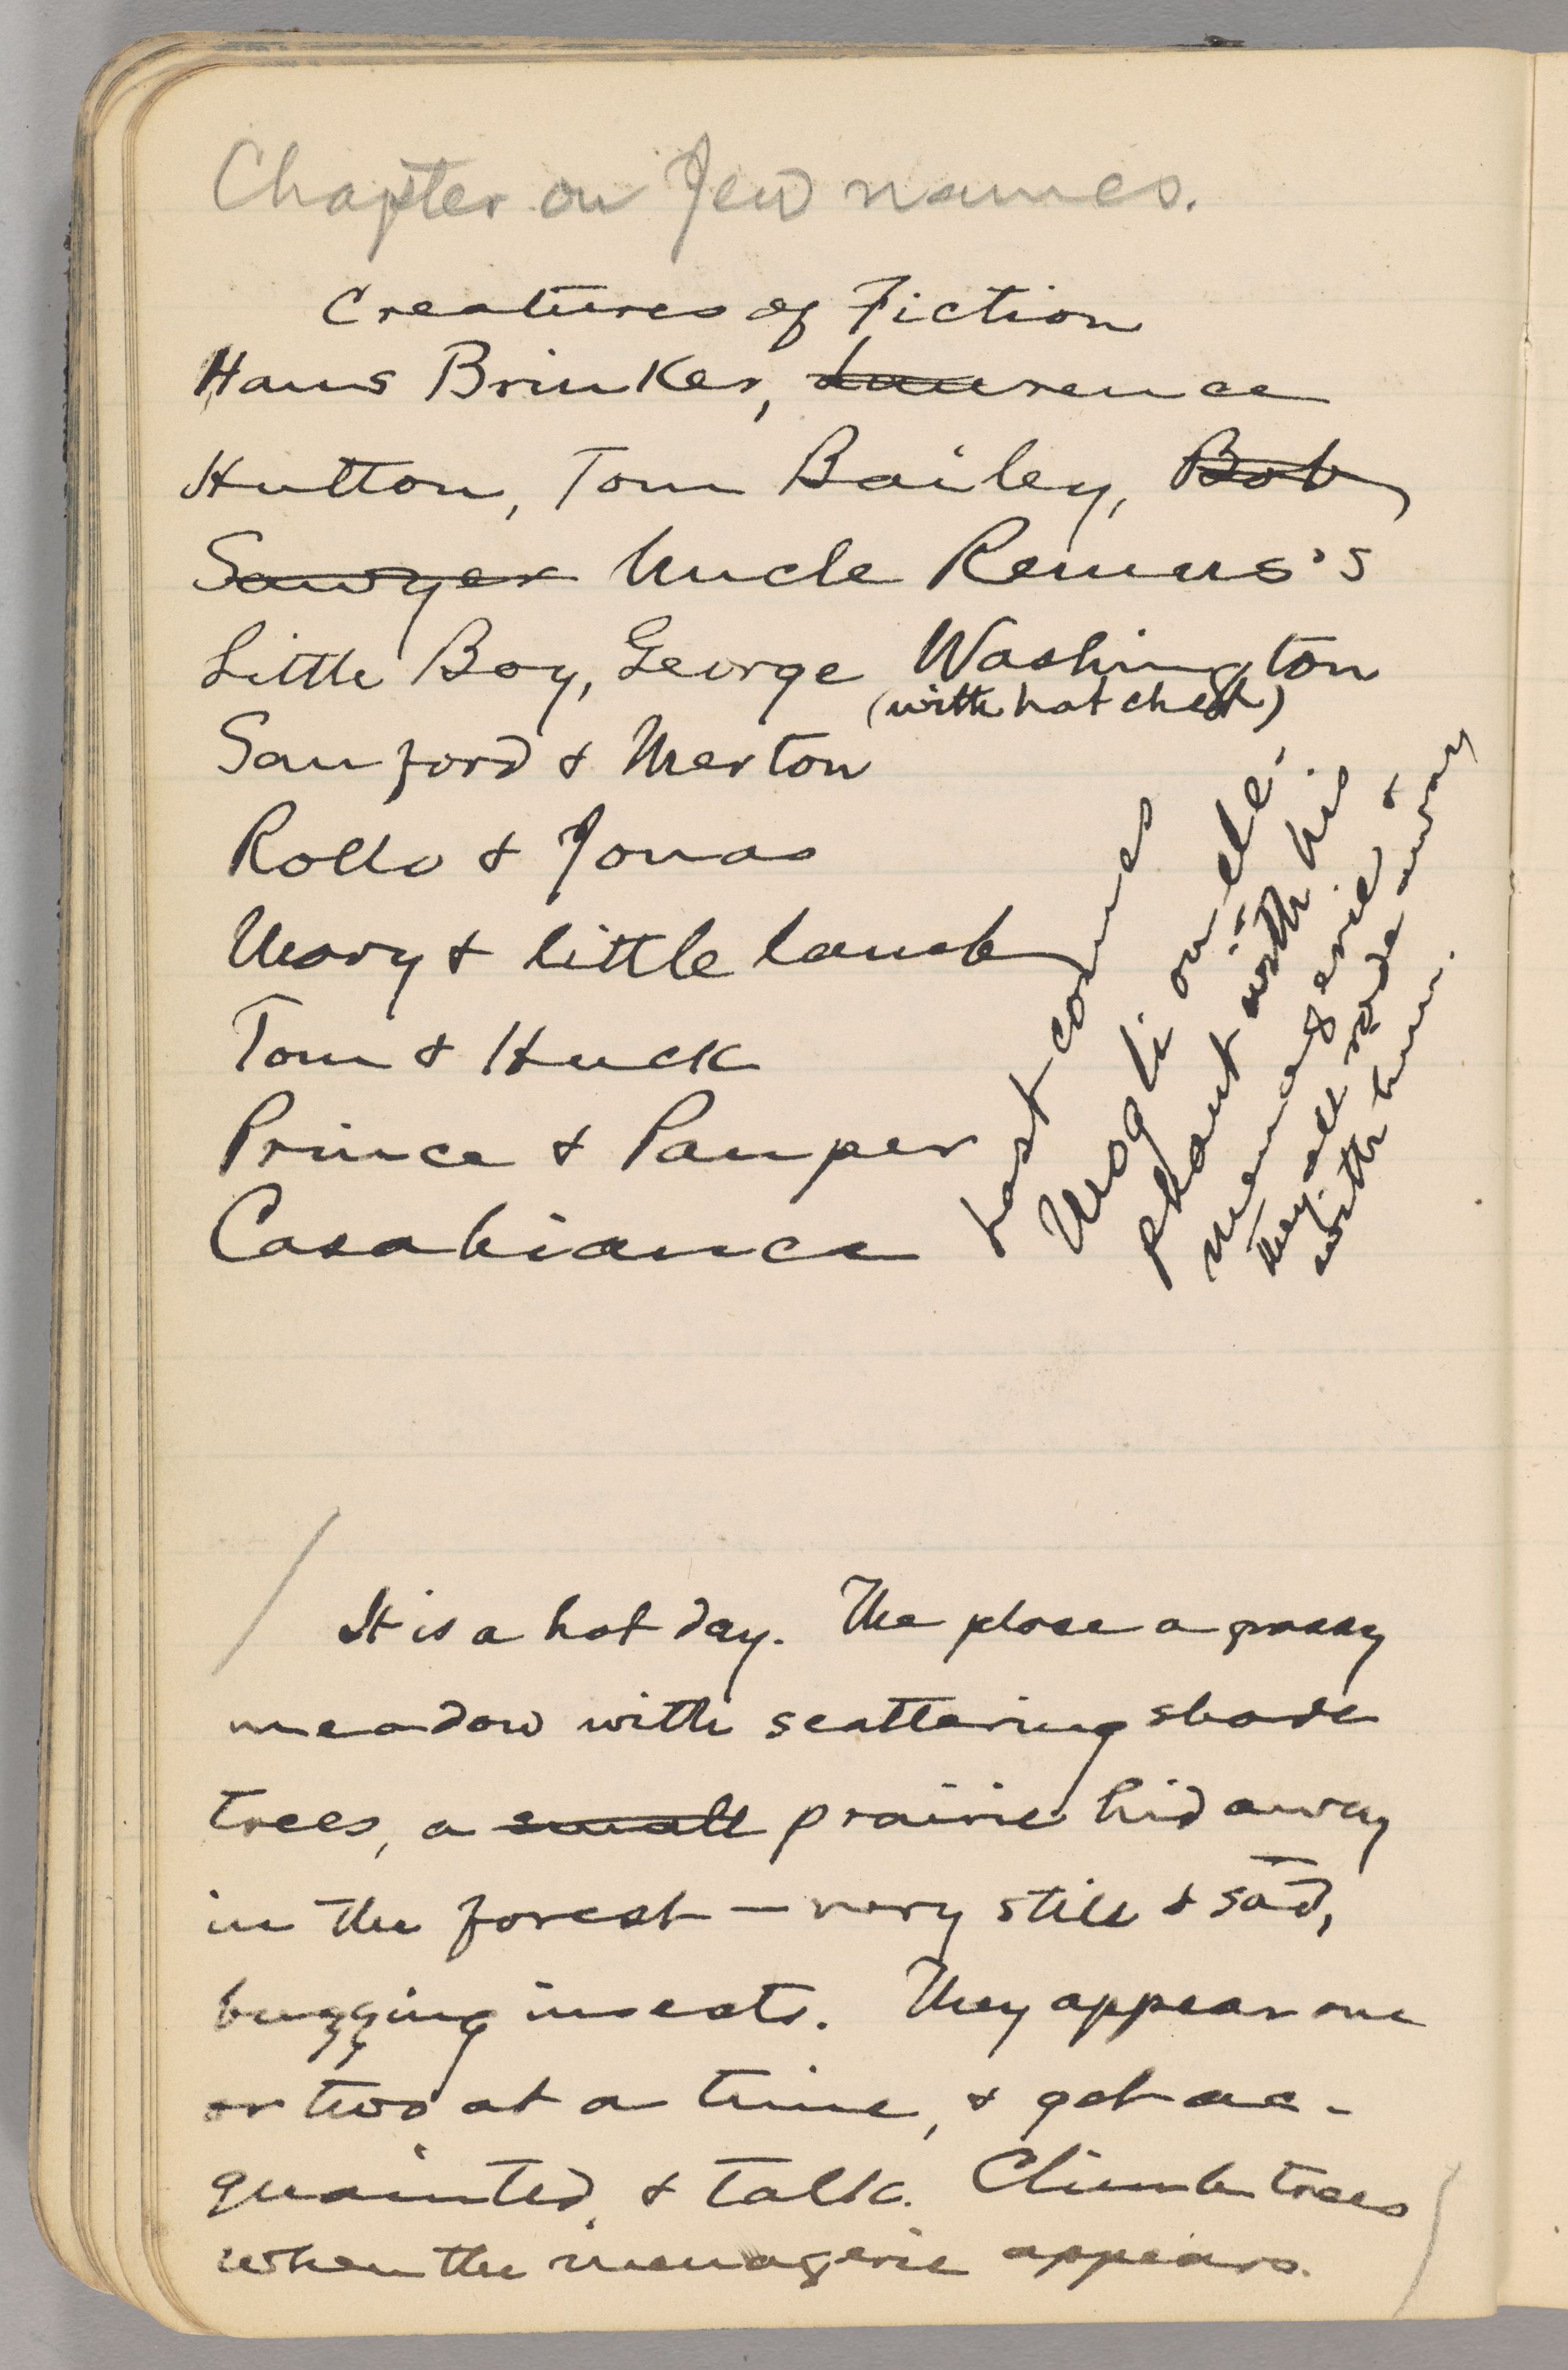 Chapter on Jew names.
Creatures of Fiction
Hans Brinker, Laurence
Hutton, Tom Bailey, Bob
Sawyer Uncle Remus's
Little Boy, George Washington
(with hatchet)
Sanford & Merton
Rollo & Jonas
Mary & little lamb
Tom & Huck
Prince & Pauper
Casabianca
Last comes
Mogli on ele-
phant with his
menagerie &
they all rode away
with him.
It is a hot day. The place a grassy
meadow with scattering shade
trees, a small prairie hid away
in the forest — very still & sad,
buzzing insects. They appear one
or two at a time, & get ac-
quainted, & talk. Climb trees
when the menagerie appears.